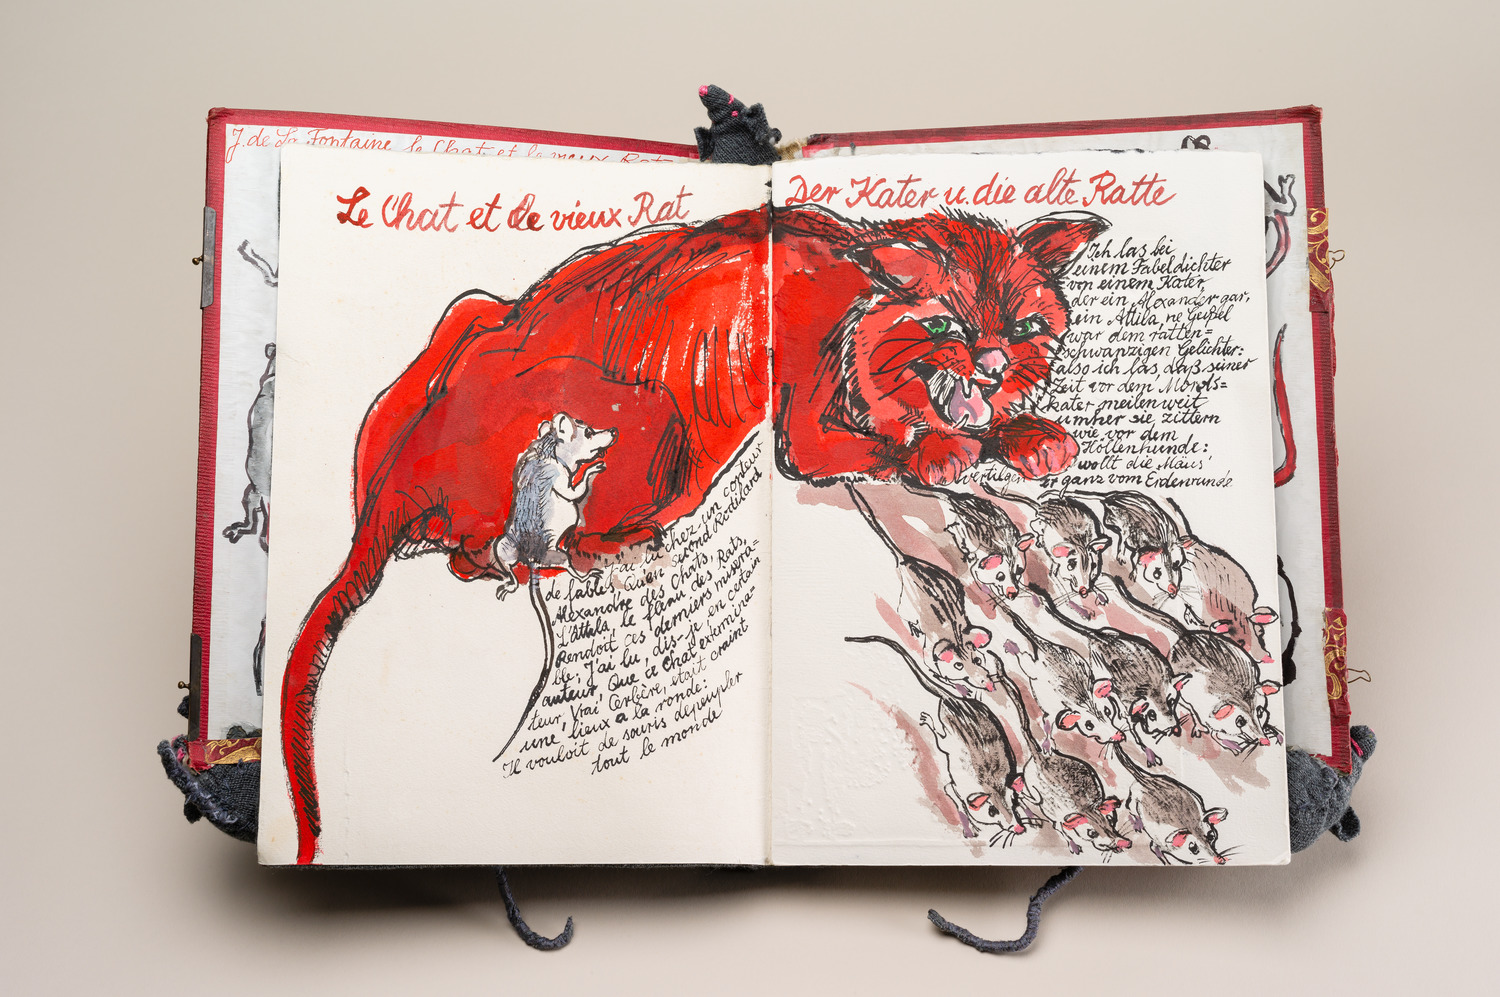 J. de La Fontaine le Chat et le vieux Rat
Le Chat et de vieux Rat
chez un conteur
de fables, qu'un second Rodilard
Alexandre des Chats,
L'Attala, le fléau des Rats,
Rendoit ces derniers miséra=
ble; J'ai lu, dis-je en certain
auteur, Que ce chat extermina=
teur, Vrai Cerbère, était craint
une lieux a la ronde:
Il vouloit de souris dépeupler
tout le monde
Der Kater u. die alte Ratte
Ich las bei
einem Fabeldichter
von einem Kater,
der ein Alexander gar,
ein Attila, ne Geißel
war dem ratten=
schwanzigen Gelichter:
also ich las, daß seiner
Zeit vor dem Mords=
kater meilenweit
umher sie zittern
wie vor dem
Höllenhunde:
wollt die Mäus'
vertilgen er ganz vom Erdenrunde